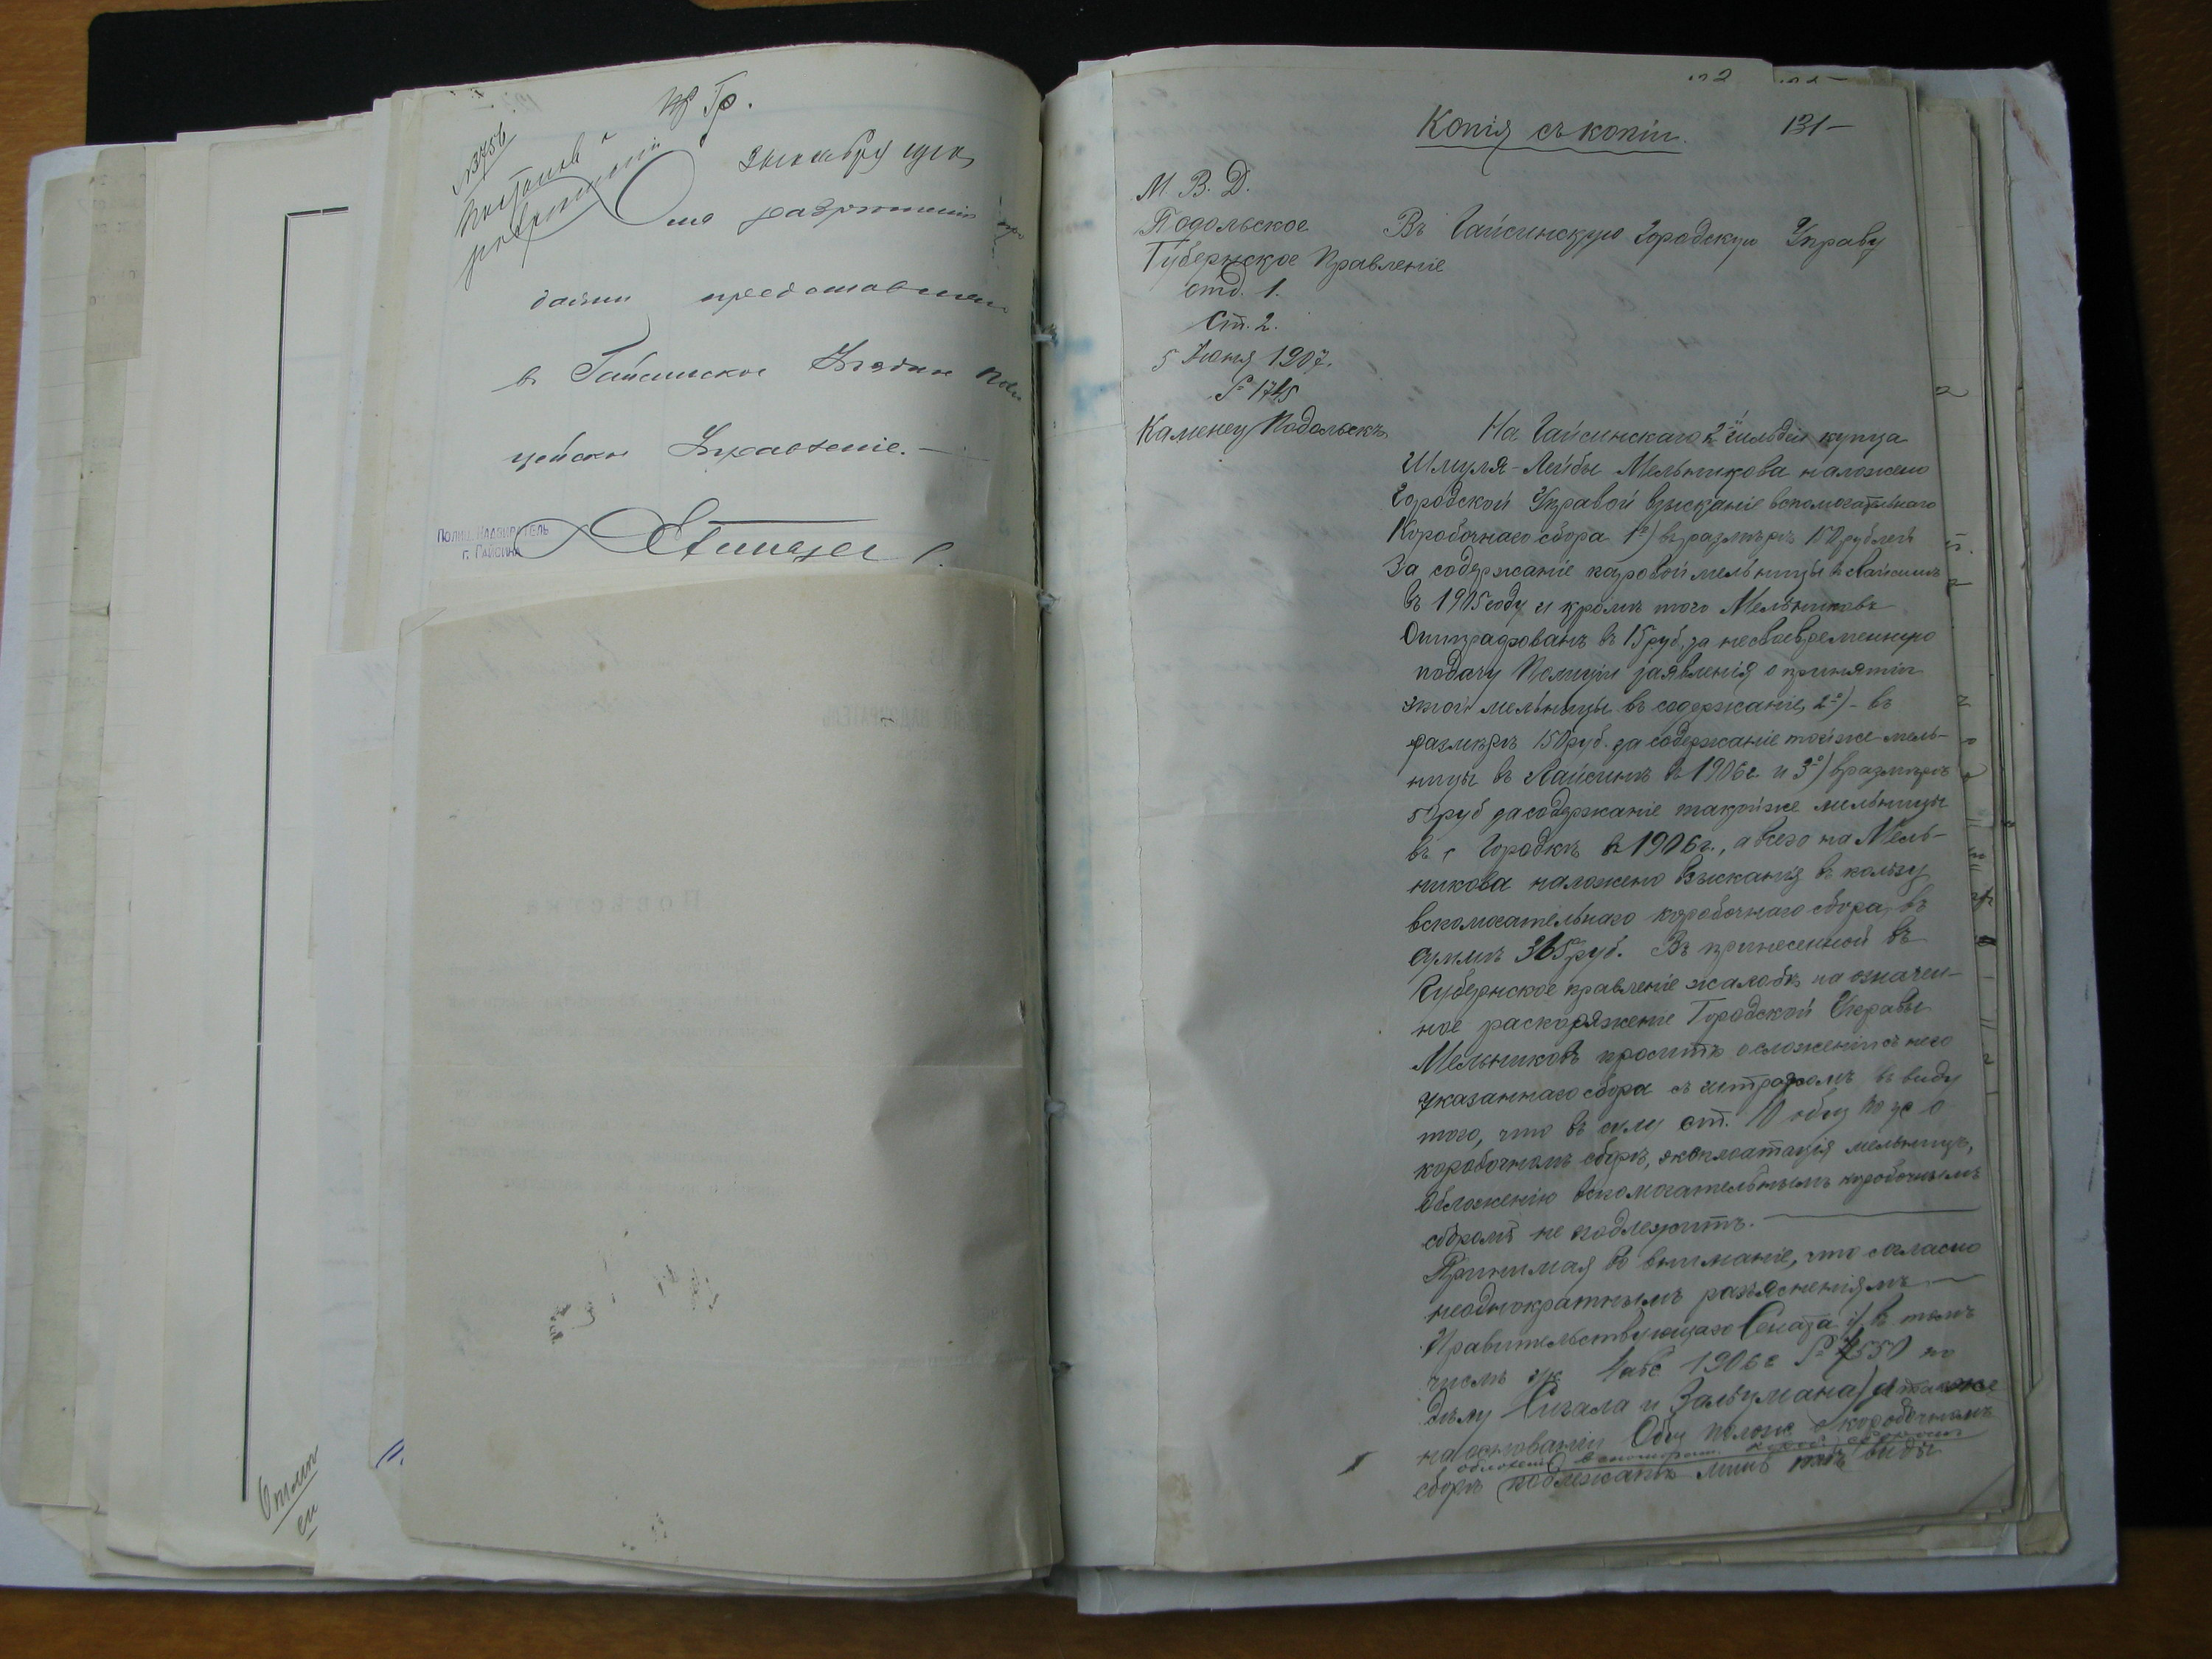 № 3756
Декабря
по разряженіи
представлено
в Гайсинское Уездное Поли
цейское Управленіе.—
ПОЛИЦ. НАДЗИРАТЕЛЬ
г. ГАЙСИНА
Копія съ копіи. 131—
М. В. Д.
Подольское
Губернское Правленіе
отд. 1.
Ст. 2.
5 Іюня 1907.
№ 1745
Каменец Подольскъ
Въ Гайсинскую Городскую Управу
На Гайсинскаго 2й гильдіи купца
Шмуля-Лейбы Мельникова наложено
Городской Управой взысканіе вспомогательнаго
Коробочнаго сбора 1º) въ размѣрѣ 150 рублей
За содержаніе паровой мельницы в Гайсинѣ
въ 1905 году и кромѣ того Мельниковъ
Оштрафованъ въ 15 руб. за несвоевременную
подачу Полиціи заявленія о принятіи
этой мельницы въ содержаніе, 2º) - въ
размѣрѣ 150 руб. за содержаніе той же мель-
ницы въ Гайсинѣ в 1906 г. и 3º) в размѣрѣ
50 руб за содержаніе такой же мельницы
въ Городкѣ в 1906 г., а всего на Мель-
никова наложено взысканія в пользу
вспомогательнаго коробочнаго сбора, въ
суммѣ 365 руб. Въ принесенной въ
Губернское правленіе жалобѣ на означен-
ное распоряженіе Городской Управы
Мельниковъ проситъ о сложеніи съ него
указаннаго сбора съ штрафомъ в виду
того, что въ силу ст. 10 общ по о
коробочномъ сборѣ, эксплоатація мельницъ,
Обложенію вспомогательнымъ коробочнымъ
сборомъ не подлежитъ.—
Принимая во вниманіе, что согласно
неоднократнымъ разъясненіямъ—
Правительствующаго Сената и) в томъ
числѣ ук 1906 г № 7550 по
дѣлу Сигала и Зальцмана) а также
на основаніи Общ полож о коробочномъ
сборѣ подлежатъ лишь виды
Отмт